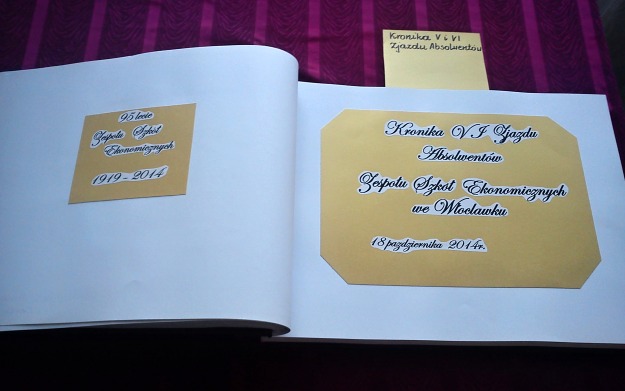 Kronika V i VI
Zjazdu Absolwentów
95 lecie
Zespołu Szkół
Ekonomicznych
1919 - 2014
Kronika V.I Zjazdu
Absolwentów
Zespołu Szkół Ekonomicznych
we Włocławku
18 października 2014r.